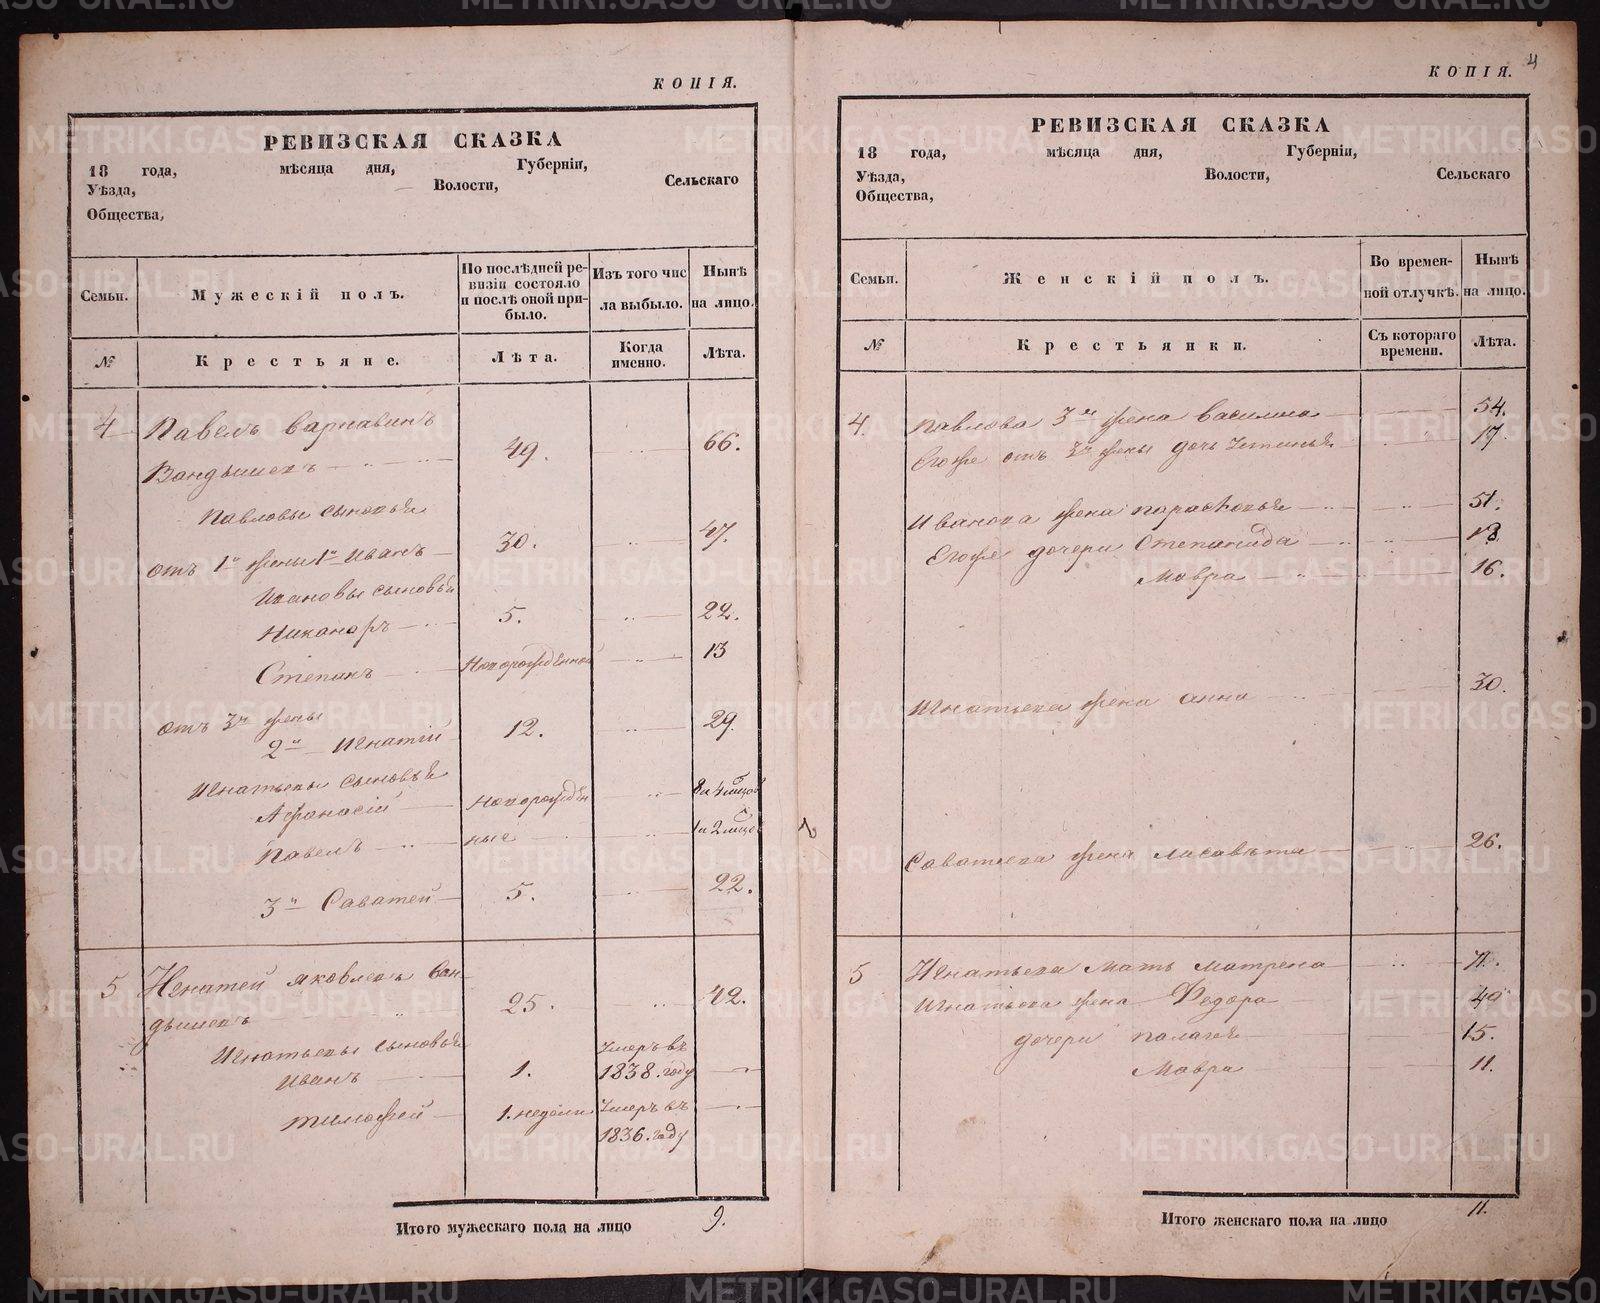 КОПІЯ.
РЕВИЗСКАЯ СКАЗКА
18 года, мѣсяца дня, Губерніи,
Уѣзда, Волости, Сельскаго
Общества,
Семьи. Мужескій полъ. По послѣдней ре-визіи состояло и послѣ оной при-было. Изъ того чис ла выбыло. Нынѣ на лицо.
№ Крестьяне. Лѣта. Когда именно. Лѣта.
4 Павелъ Варлавинъ
Вандышевъ 49. 66.
Павловы сыновья
отъ 1й жены 1й Иванъ 30. 47.
Ивановы сыновья
Никаноръ 5. 22.
Степанъ Новорожденной 13
отъ 3й жены
2й Игнатій 12. 29.
Игнатьевы сыновья
Афанасій новорожден 8 и 4 мцов
Павелъ ные 1 и 2 мцов
3й Саватей 5. 22.
5 Игнатей Яковлевъ Ван
дышевъ 25. 42.
Игнатьевы сыновья
Иванъ 1. Умеръ въ 1838. году
Тимофей 1. недели Умеръ въ 1836. году
Итого мужескаго пола на лицо 9.
4
КОПІЯ.
РЕВИЗСКАЯ СКАЗКА
18 года, мѣсяца дня, Губерніи,
Уѣзда, Волости, Сельскаго
Общества,
Семьи. Женскій полъ. Во времен-ной отлучкѣ. Нынѣ на лицо.
№ Крестьянки. Съ котораго времени. Лѣта.
4. Павлова 3я жена Василиса 54.
Егоже отъ 3й жены дочь Устинья 17.
Иванова жена Парасковья 51.
Егоже дочери Степанида 18.
Мавра 16.
Игнатьева жена Анна 30.
Саватьева жена Лисавѣта 26.
5 Игнатьева мать Матрена 71.
Игнатьева жена Федора 40
дочери Палагея 15.
Мавра 11.
Итого женскаго пола на лицо 11.
METRIKI.GASO-URAL.RU